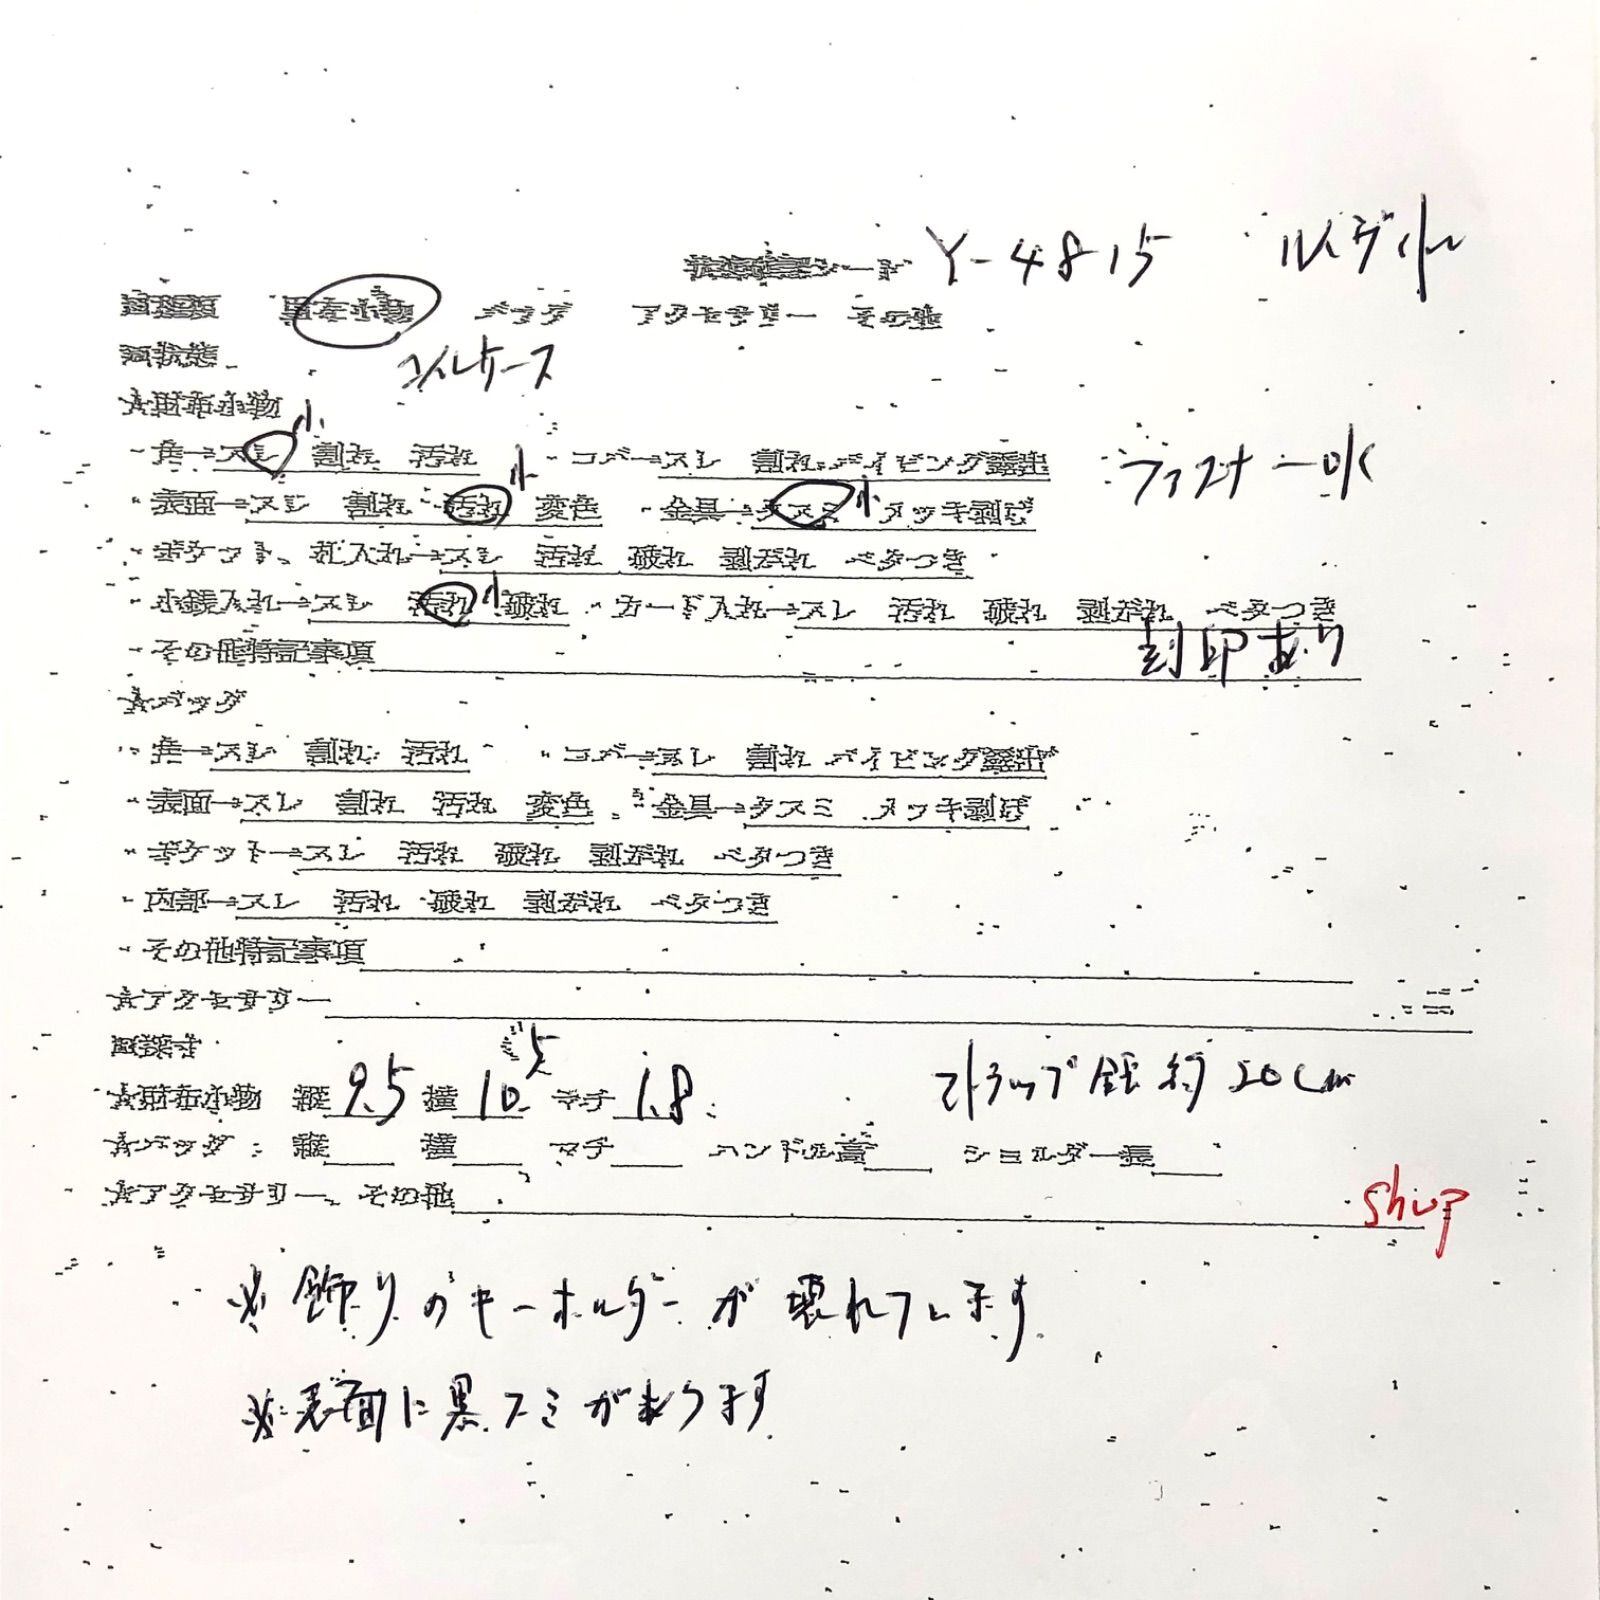 Y-4815 ルイヴィトン
財布小物 バッグ アクセサリー その他
状態
コインケース
☆財布小物
・角→スレ 小 割れ 汚れ ・コバ→スレ 割れ パイピング露出 ファスナー OK
・表面→スレ 割れ 汚れ 小 変色 ・金具→クスミ 小 メッキ剥げ
・ポケット、札入れ→スレ 汚れ 破れ 剥がれ ベタつき
・小銭入れ→スレ 汚れ 小 破れ ・カード入れ→スレ 汚れ 破れ 剥がれ ベタつき
・その他特記事項 刻印あり
☆バッグ
・角→スレ 割れ 汚れ ・コバ→スレ 割れ パイピング露出
・表面→スレ 割れ 汚れ 変色 ・金具→クスミ メッキ剥げ
・ポケット→スレ 汚れ 破れ 剥がれ ベタつき
・内部→スレ 汚れ 破れ 剥がれ ベタつき
・その他特記事項
☆アクセサリー
採寸
☆財布小物 縦 9.5 横 10.5 マチ 1.8 ストラップ 全長 約 20cm
☆バッグ 縦 横 マチ ハンドル高 ショルダー長
☆アクセサリー、その他 shop
※飾りのキーホルダーが壊れています
※表面に黒ズミがあります